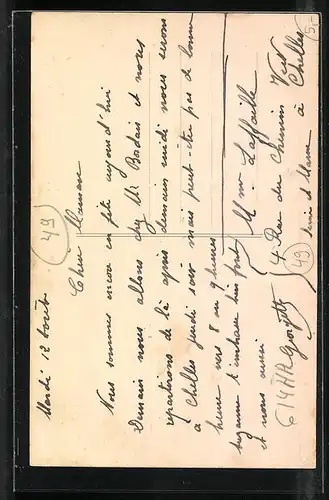 Mardi 12 Août
Chère Maman
Nous sommes encore en fête aujourd'hui
Demain nous allons chez M. Badais et nous
repartirons de là après demain midi nous serons
à Chelles jeudi soir mais peut-être pas de bonne
heure vers 8 ou 9 heures
Suzanne t'embrasse bien fort
et nous aussi
Georgette
Mme Laffaille
4 Rue du Chemin Vert
à Chelles
Seine et Marne
49
49
5,-